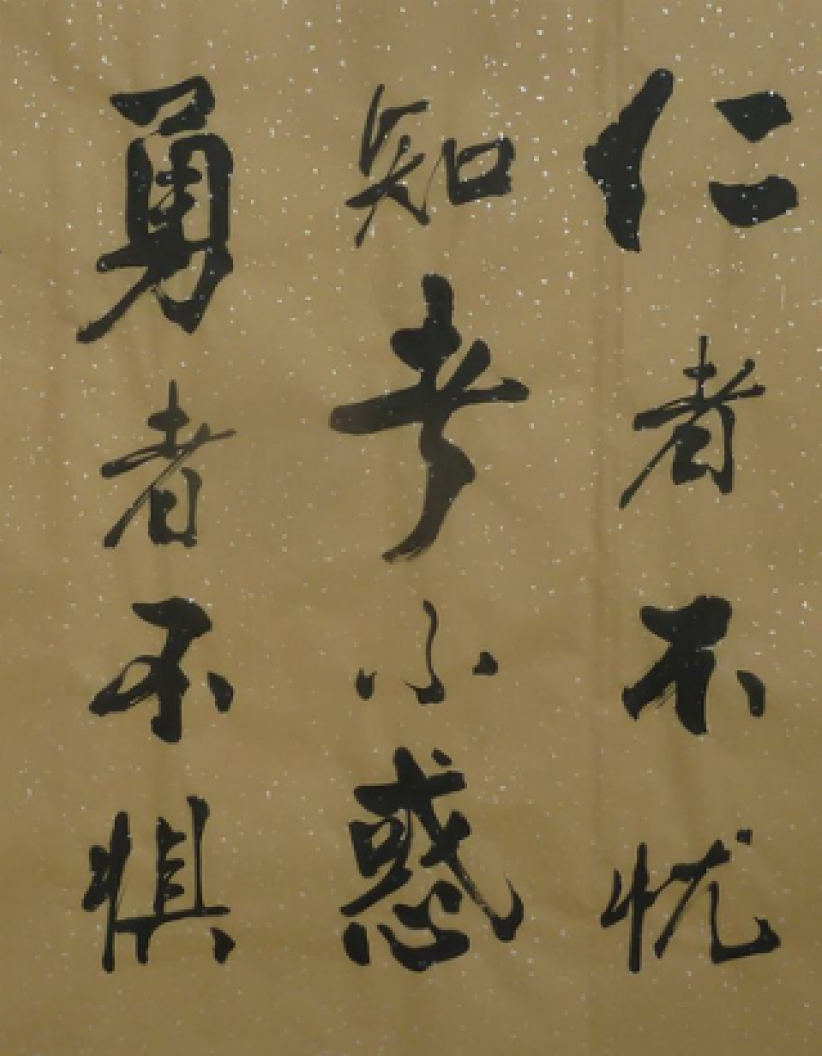 仁者不忧
知考小惑
勇者不惧